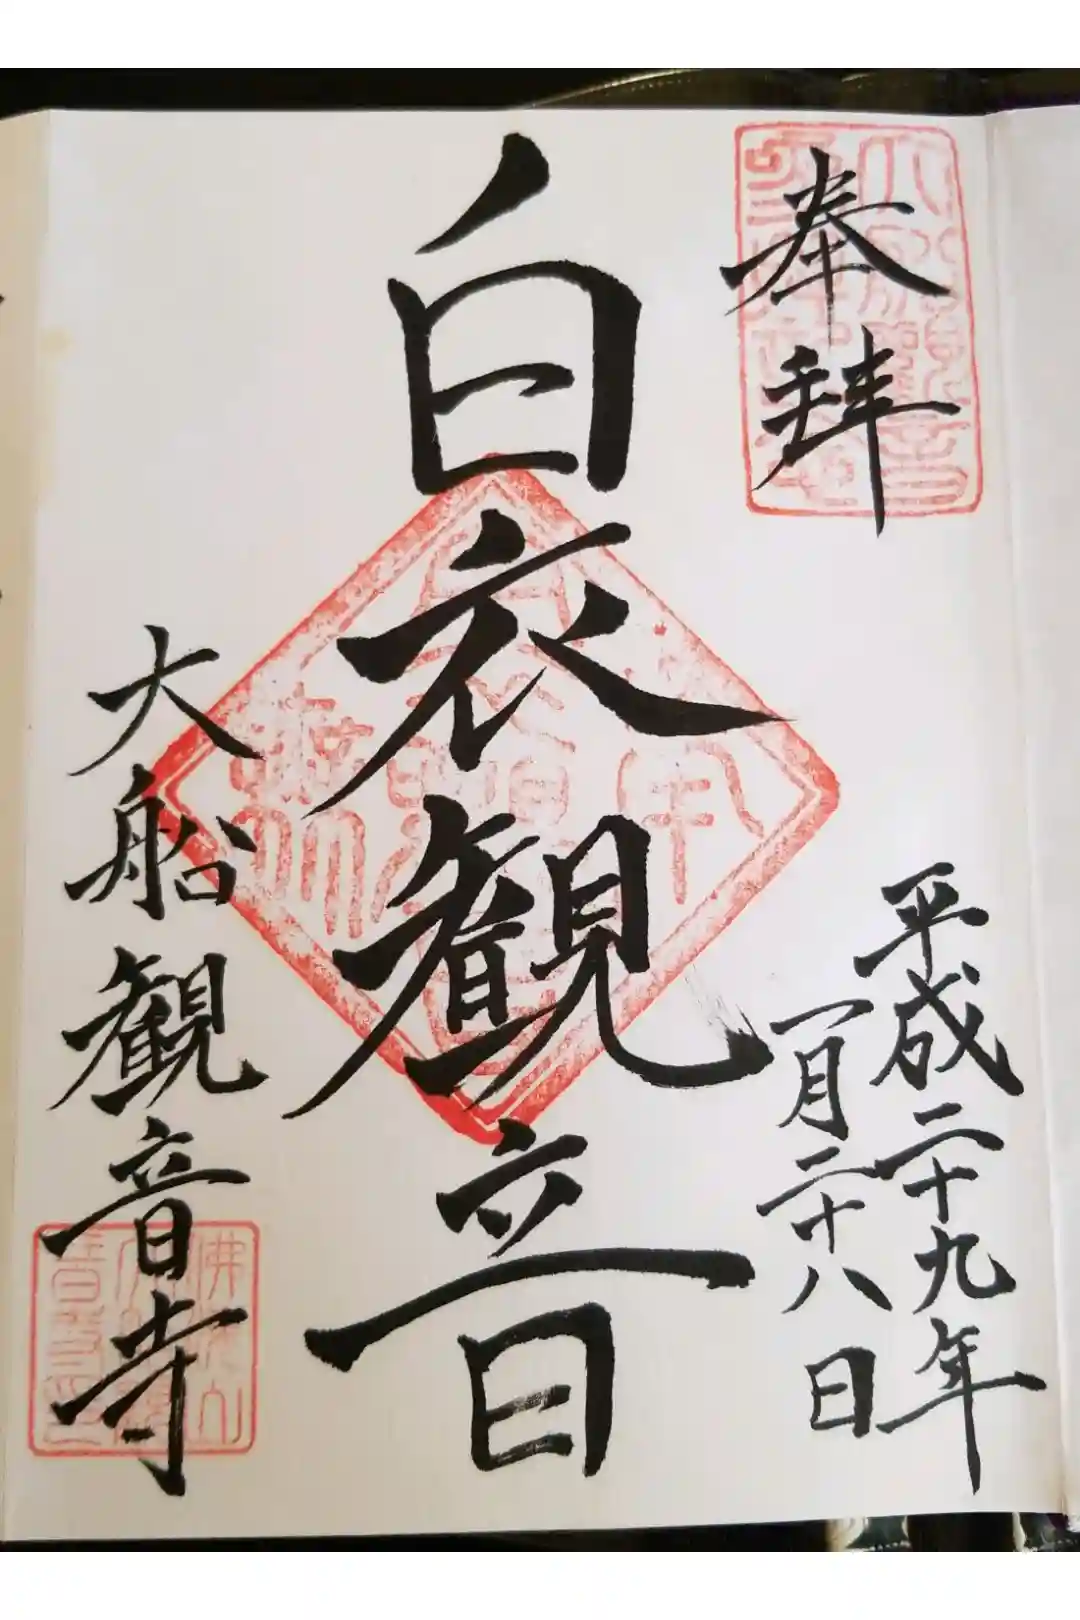 奉拝
平成二十九年
一月二十八日
白衣観音
大船観音寺